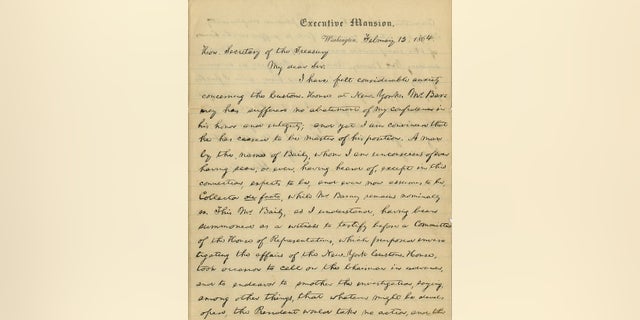 Executive Mansion,
Washington, February 13, 1864.
Hon. Secretary of the Treasury
My dear Sir:
I have felt considerable anxiety
concerning the Custom House at New York. Mr. Bar-
ney has suffered no abatement of my confidence in
his honor and integrity; and yet I am convinced that
he has ceased to be master of his position. A man
by the name of Baily, whom I am unconscious of ever
having seen, or even having heard of, except in this
connection, expects to be, and even now assumes to be,
Collector de facto, while Mr. Barney remains nominally
so. This Mr. Baily, as I understand, having been
summoned as a witness to testify before a Committee
of the House of Representatives, which purposed inves-
tigating the affairs of the New York Custom House,
took occasion to call on the Chairman in advance,
and to endeavor to smother the investigation, saying,
among other things, that whatever might be devel-
oped, the President would take no action, and the